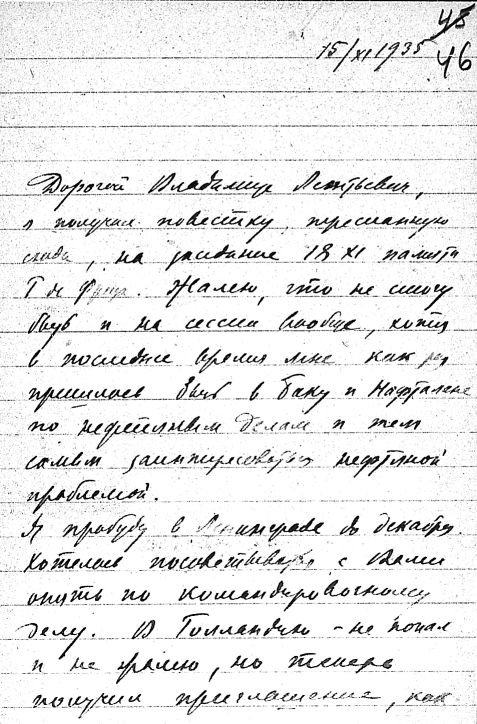 45
46
15/XI 1935
Дорогой Владимир Леонтьевич,
я получил повестку, пересланную
сюда, на заседание 18 XI памяти
Жалею, что не смогу
быть и на сессии вообще, хотя
в последнее время мне как раз
пришлось быть в Баку и Нафталане
по нефтяным делам и тем
самым заинтересоваться нефтяной
проблемой.
Я пробуду в Ленинграде до декабря.
Хотелось посоветоваться с Вами
опять по командировочному
делу. В Голландию - не попал
и не жалею, но теперь
получил приглашение, как